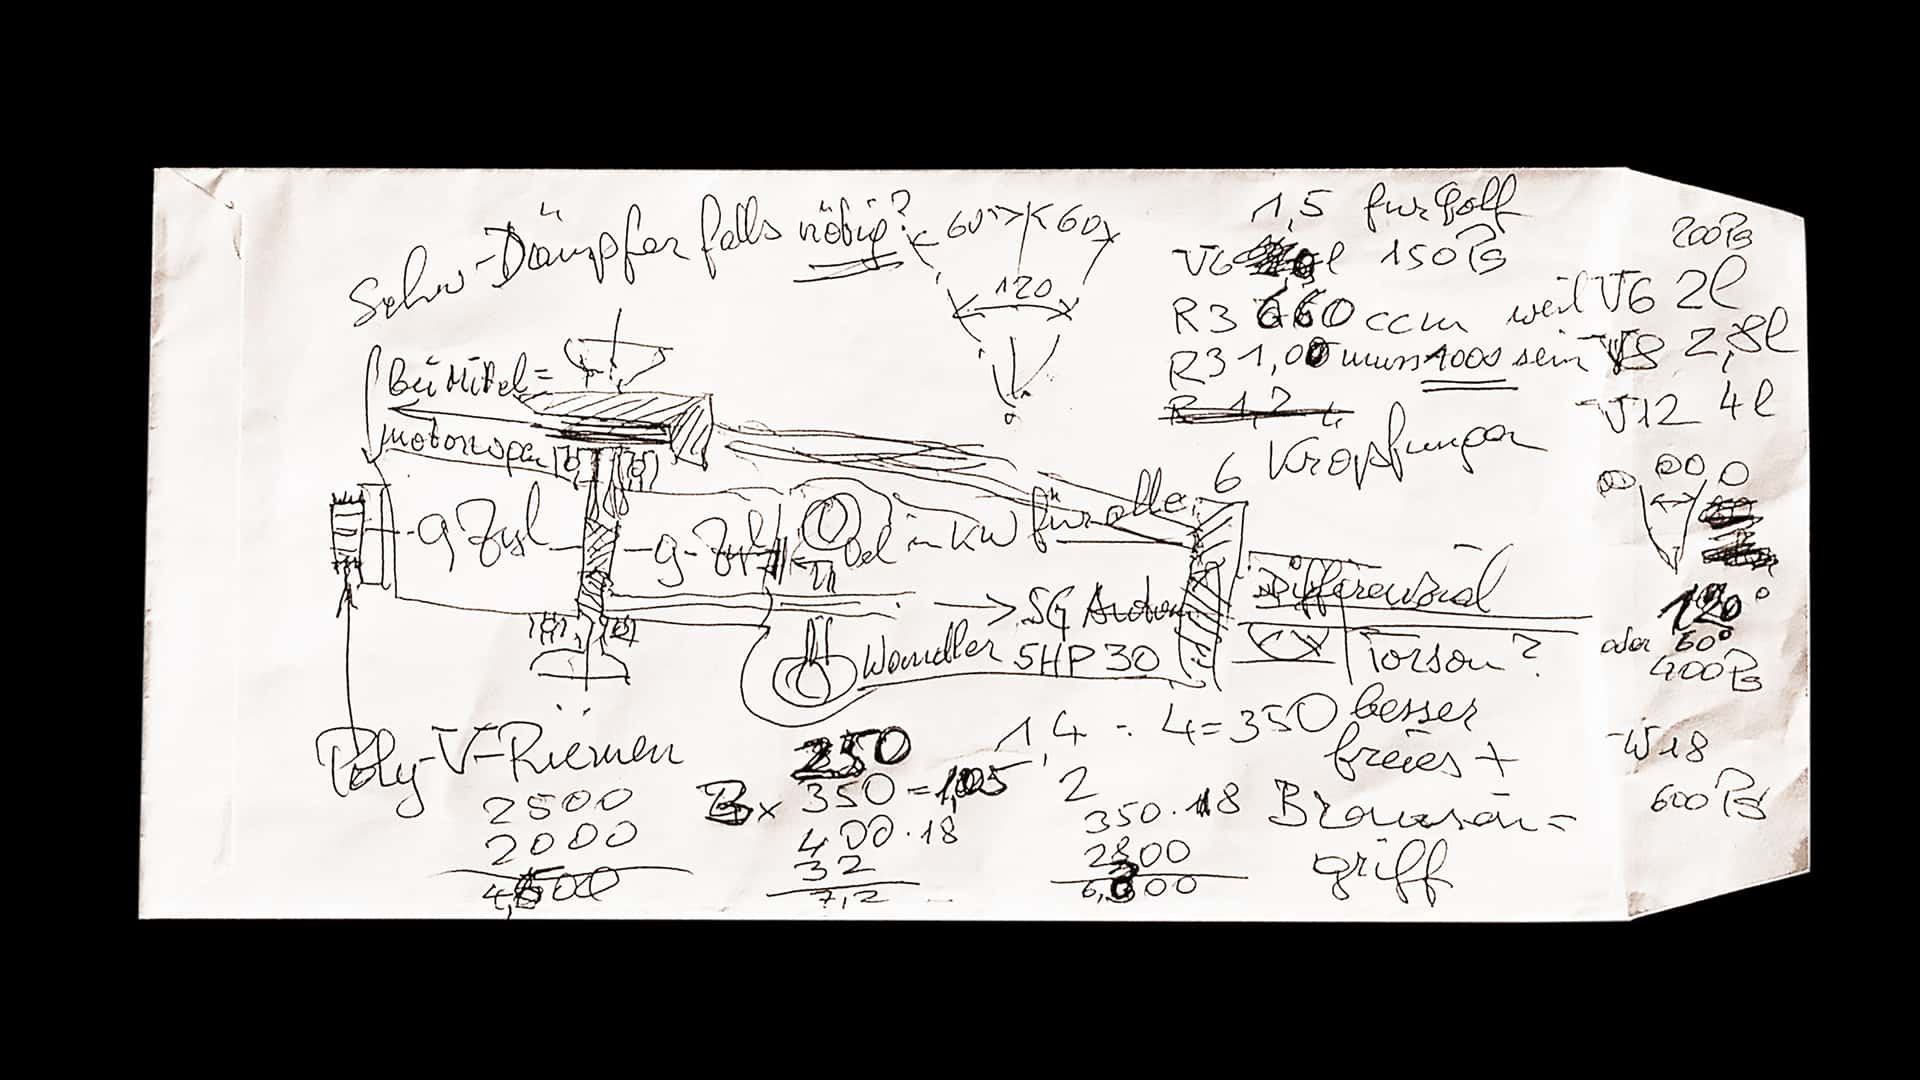 Schw-Dämpfer falls nötig?
60°
60
120
1,5 für Golf
V6 l 150 PS
R3 660 ccm weil V6 2l
R3 1,00 muss 1000 sein V8 2,8l
R 1,2 L
V12 4l
200PS
6 Kröpfungen
Bei Mittel=
motorwagen
9 Zyl
9-Zyl
Öl in KW für alle
Wandler
→ SG
5HP30
Differenzial
Torsen?
120°
oder 60°
400PS
W18
600 PS
Poly-V-Riemen
2500
2000
250
x 350 = 1,05
400 . 18
32
7,2
1,4 : 4 = 350 besser
2
freies +
350 . 18
2800
Brausen=
griff